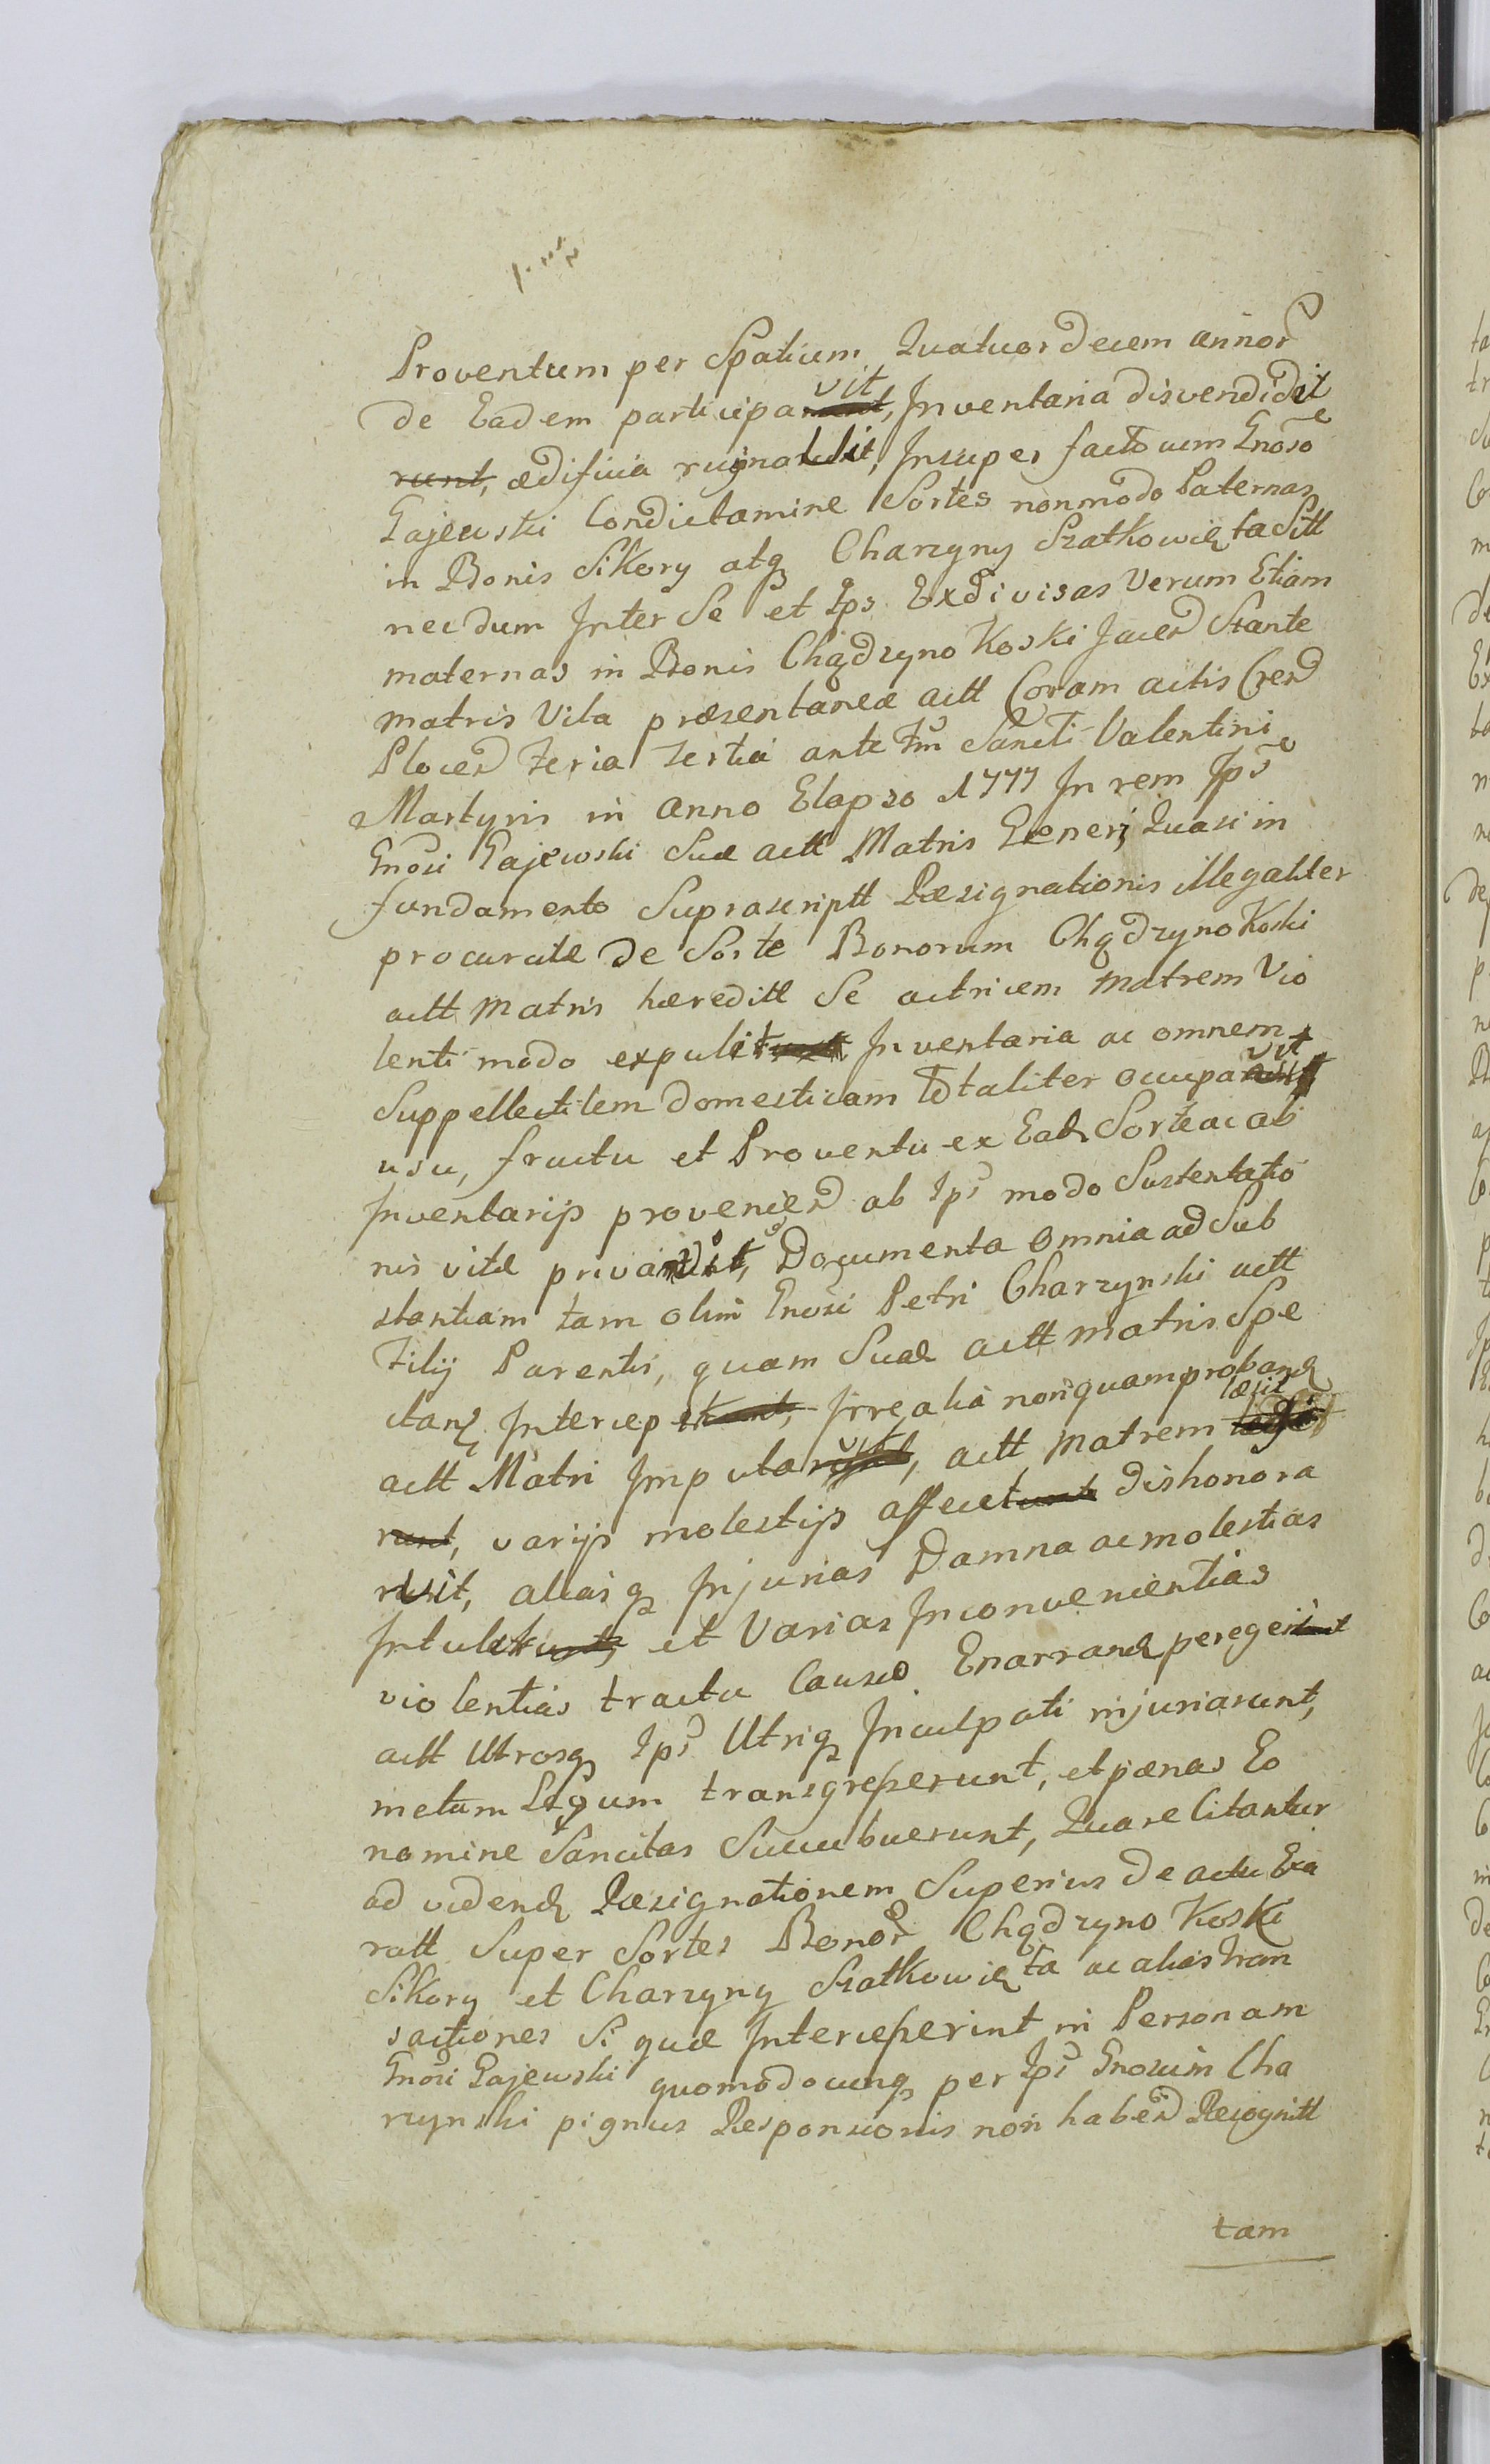 Proventum per Spatium Quatuordecem annor
de Eadem participavit, Inventaria disvendidit
runt, ædificia rujnavit, Insuper facto cum Gnoso
Gajewski Condictamine Sortes nonmodo Paternas
in Bonis Sikory atq Charzyny Szatkowięta Sitt
necdum Inter Se et Ips Exdivisas Verum Etiam
maternas in Bonis Chądzyno Koski Jacen Stante
matris Vita præsentanea actt Coram actis Cren
Plocen Feria Tertia ante Fm Sancti Valentini
Martyris in Anno Elapso 1777 In rem Ips
Gnosi Gajewski Suæ actt Matris Generj Quasi in
fundamento Suprascriptt Resignationis illegaliter
procuratæ de Sorte Bonorum Chądzyno Koski
actt Matris hæreditt Se actricem Matrem Vio
lenti modo expulit Inventaria ac omnem
Suppellectilem domesticam totaliter occupavit
usu, fructu et Proventu ex Ead Sorte ac ab
Inventarijs provenien ab Ips modo Sustentatio
nis vitæ privavit, Documenta omnia ad Sub
stantiam tam olim Gnosi Petri Charzynski actt
Filij Parentis, quam Suæ actt Matris Spe
ctan Intercepit, Irrealia nonquam proband
actt Matri Imputavit, actt Matrem læsit
runt, varijs molestijs affecit dishonora
vit, aliasq Injurias Damna ac molestias
Intulit et Varias Inconvenientias
violentias tractu Causæ Enarrand peregit
actt Utrosq Ips Utriq Inculpati injuriarunt,
metam Legum transgresserunt, et pænas Eo
nomine Sancitas Succubuerunt, Quare Citantur
ad videnď Resignationem Superius de actu Exa
ratt Super Sortes Bonor Chądzyno Koski
Sikory et Charzyny Szatkowięta ac alias tran
sactiones Si quæ Intercesserint in Personam
Gnosi Gajewski quomodocunq per Ips Gnosum Cha
rzynski pignus Responsionis non haben Recognitt
tam